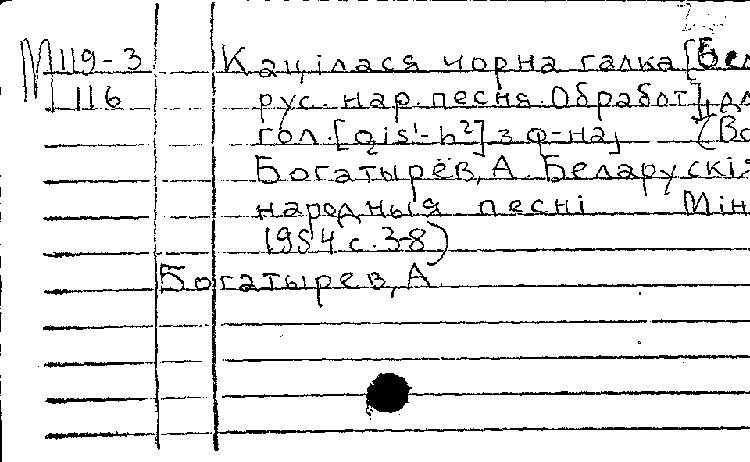 М 119-3 Кацілася чорна галка [Бел
116 рус. нар. песня. Обработ], дл
гол. [gis¹-h²] з ф-на, (Во
Богатырёв, А. Беларускія
народныя песні Мін
1954 с. 3-8)
Богатырев, А